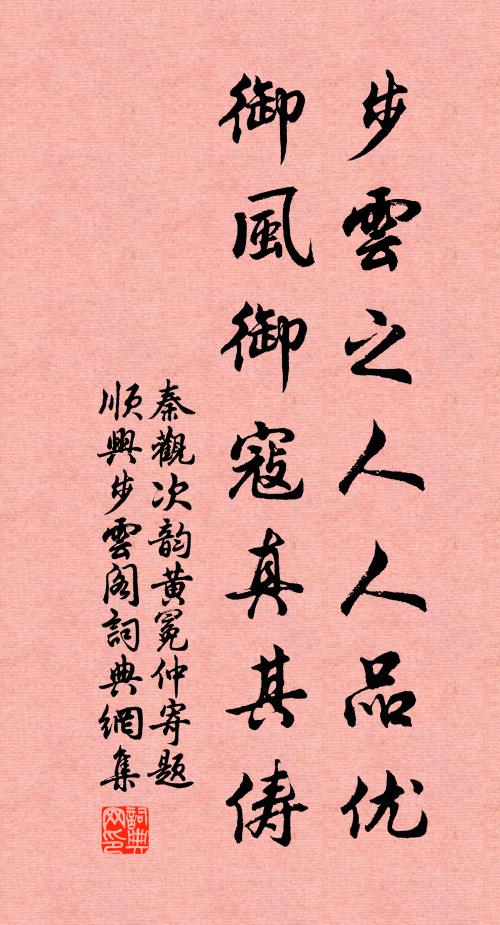 步雲之人人品优
御風御寇真其俦
秦觀次韵黄冕仲寄题
顺興步雲阁詞典網集
詞典网印